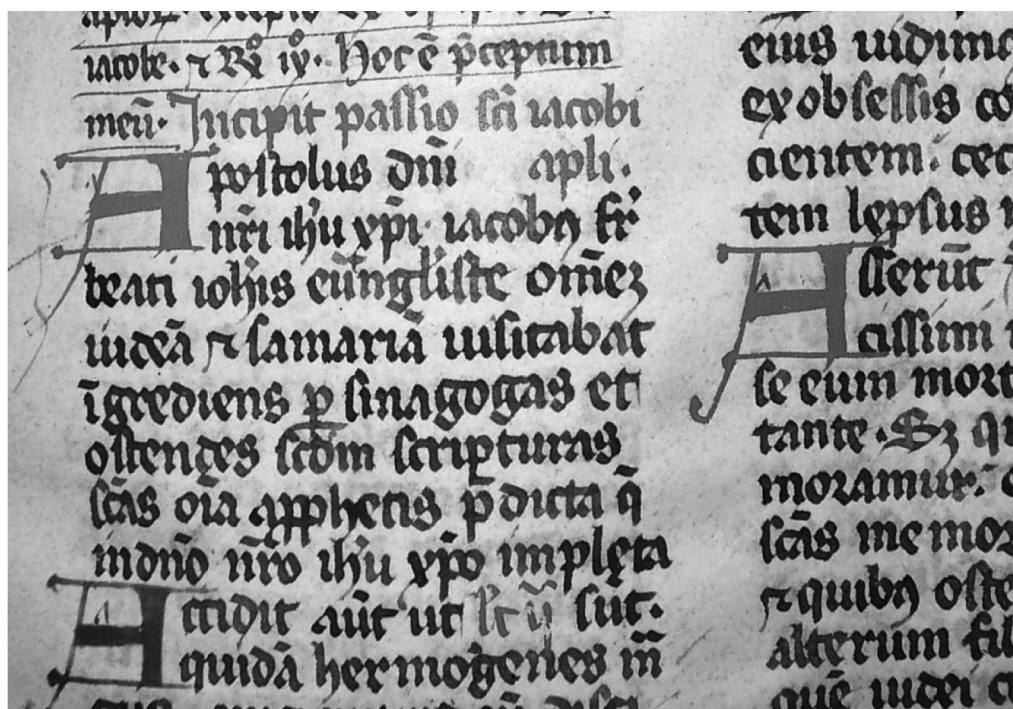 iacobe. ⁊ Rx̊ ix̊. Hoc ē p̄ceptum
meū. Incipit passio sc̄i iacobi
Apostolus dn̄i apl̄i.
nr̄i ih̄u xp̄i iacobꝰ fr̄
beati ioh̄is euu̅ngl̄iste om̄eꝫ
iudeā ⁊ samariā uisitabat
īgrediens ꝑ sinagogas et
ostendēs scd̄m scripturas
sc̄as oīa a ꝓphetis p̄dicta q̄
in dn̄o nr̄o ih̄u xp̄o implęta
Accidit aūt ut sūt.
quidā hermogenes m̄
eius uidimo
ex obsessis co
cientem. cec
tem lępsus
Asserūt
cissimi
se eum mort
tante. Sꝫ qu
moramur.
sc̄as memor
⁊ quibꝰ oste
alterum fil
quē iudei c